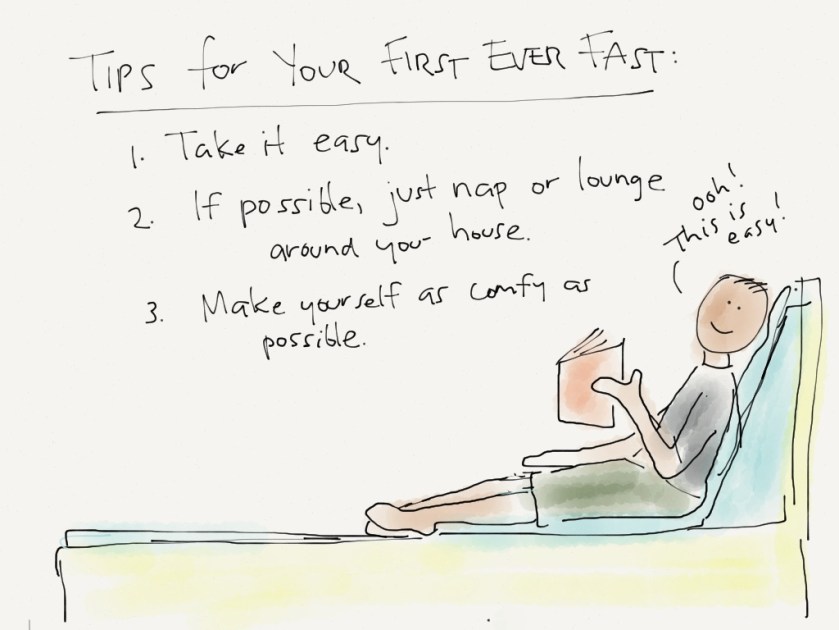 TIPS for YOUR FIRST EVER FAST:
1. Take it easy.
2. If possible, just nap or lounge
around your house.
3. Make yourself as comfy as
possible.
ooh!
This is
easy!